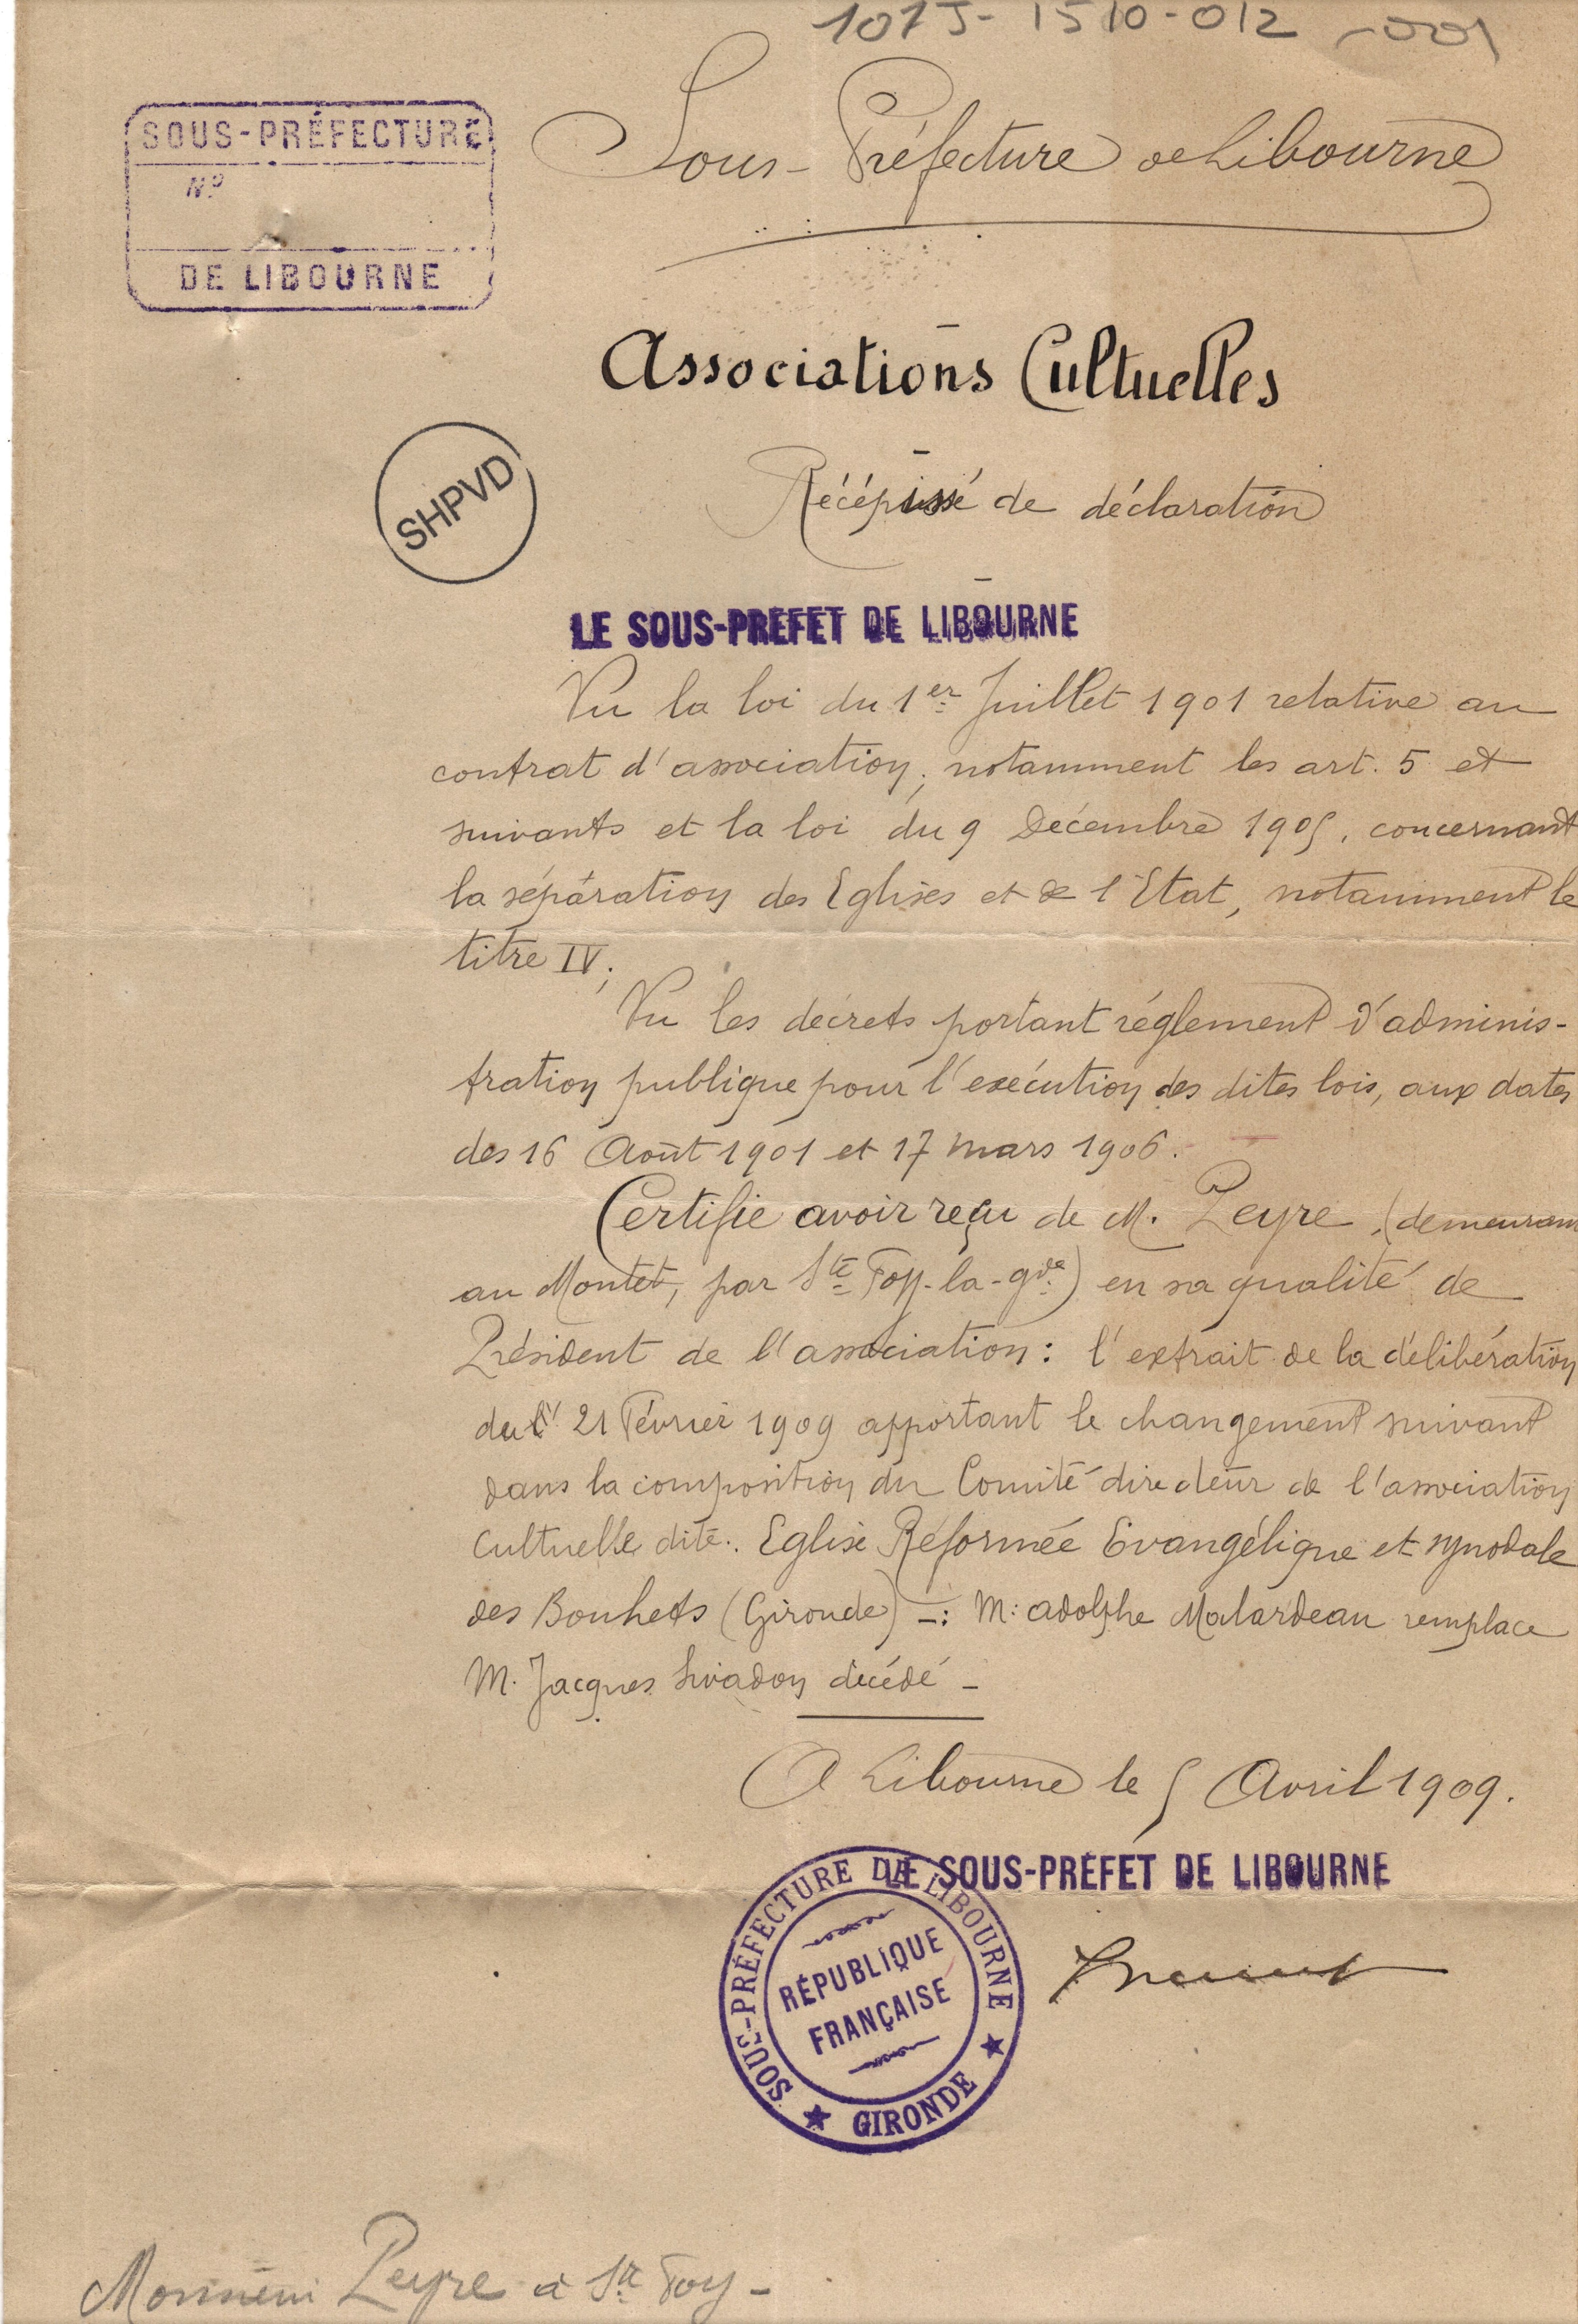 107J-1510-012-001
SOUS-PRÉFECTURE
N°
DE LIBOURNE
Sous-Préfecture de Libourne
Associations Cultuelles
SHPVD
Récépissé de déclaration
LE SOUS-PREFET DE LIBOURNE
Vu la loi du 1er Juillet 1901 relative au
contrat d'association, notamment les art. 5 et
suivants et la loi du 9 Décembre 1905, concernant
la séparation des Eglises et de l'Etat, notamment le
titre IV;
Vu les décrets portant réglement d'adminis-
tration publique pour l'exécution des dites lois, aux dates
des 16 Août 1901 et 17 mars 1906.
Certifie avoir reçu de M. Peyre, (demeurant
au Montet, par Ste Foy-la-gde) en sa qualité de
Président de l'association: l'extrait de la délibération
du 21 Février 1909 apportant le changement suivant
dans la composition du Comité directeur de l'association
Cultuelle dite: Eglise Réformée Evangélique et synodale
des Bouhets (Gironde) -: M: adolphe Malardeau remplace
M. Jacques Livadon décédé -
A Libourne le 5 Avril 1909.
LE SOUS-PRÉFET DE LIBOURNE
SOUS-PRÉFECTURE DE LIBOURNE
RÉPUBLIQUE
FRANÇAISE
★ GIRONDE ★
Monsieur Peyre à Ste Foy -